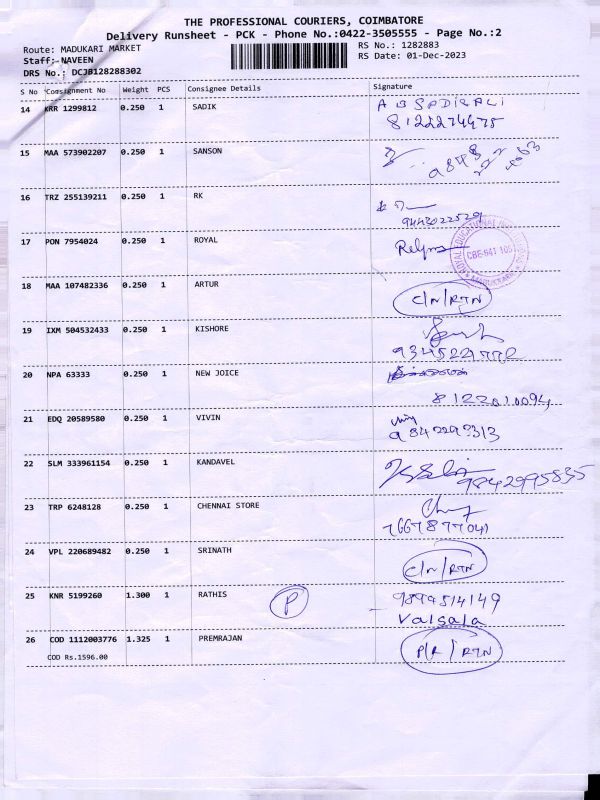 THE PROFESSIONAL COURIERS, COIMBATORE
Delivery Runsheet - PCK - Phone No.:0422-3505555 - Page No.:2
Route: MADUKARI MARKET RS No.: 1282883
Staff: NAVEEN RS Date: 01-Dec-2023
DRS No.: DCJB128288302
S No Consignment No Weight PCS Consignee Details Signature
14 KRR 1299812 0.250 1 SADIK
15 MAA 573902207 0.250 1 SANSON
16 TRZ 255139211 0.250 1 RK
9443022529
17 PON 7954024 0.250 1 ROYAL
CBE-641 105
18 MAA 107482336 0.250 1 ARTUR C/N/RTN
19 IXM 504532433 0.250 1 KISHORE
20 NPA 63333 0.250 1 NEW JOICE
21 EDQ 20589580 0.250 1 VIVIN
22 SLM 333961154 0.250 1 KANDAVEL 9842995835
23 TRP 6248128 0.250 1 CHENNAI STORE
24 VPL 220689482 0.250 1 SRINATH C/N/RTN
25 KNR 5199260 1.300 1 RATHIS P 9894514149
Valsala
26 COD 1112003776 1.325 1 PREMRAJAN P/R/RTN
COD Rs.1596.00